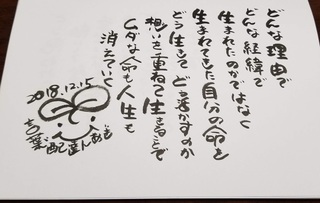 どんな理由で
どんな経緯で
生まれたのかではなく
生まれてきた自分の命を
どう生きて どう活かすのか
想いを重ねて生きることで
ムダな命も人生も
消えていく
2018.12.15
言葉配達人